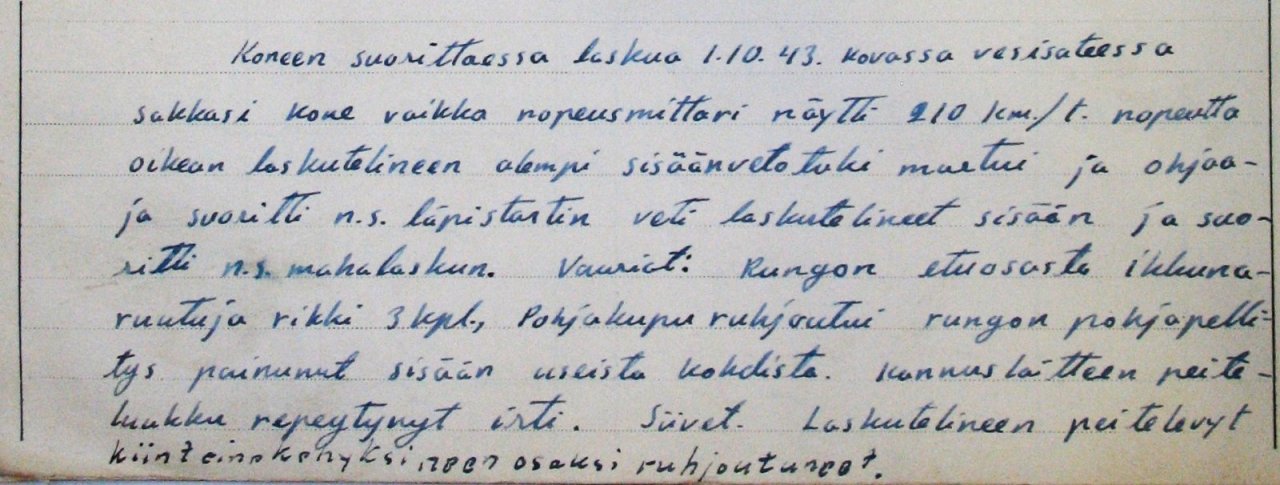 Koneen suorittaessa laskua 1.10.43. kovassa vesisateessa
sakkasi kone vaikka nopeusmittari näytti 210 km./t. nopeutta
oikean laskutelineen alempi sisäänvetotuki murtui ja ohjaa-
ja suoritti n.s. läpistartin veti laskutelineet sisään ja suo-
ritti n.s. mahalaskun. Vauriot: Rungon etuosasta ikkuna-
ruutuja rikki 3 kpl., Pohjakupu ruhjoutui rungon pohjapelli-
tys painunut sisään useista kohdista. Kannuslaitteen peite-
luukku repeytynyt irti. Siivet. Laskutelineen peitelevyt
kiinteine kehyksineen osaksi ruhjoutuneet.